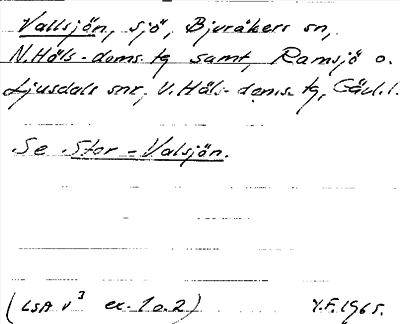 Vallsjön, sjö, Bjuråkers sn,
N. Häls-doms. tg samt, Ramsjö o.
Ljusdals snr, V. Häls-doms. tg, Gävl. l.
Se Stor-Valsjön.
(LSA V³ ex. 1 o. 2) Y.F. 1965.